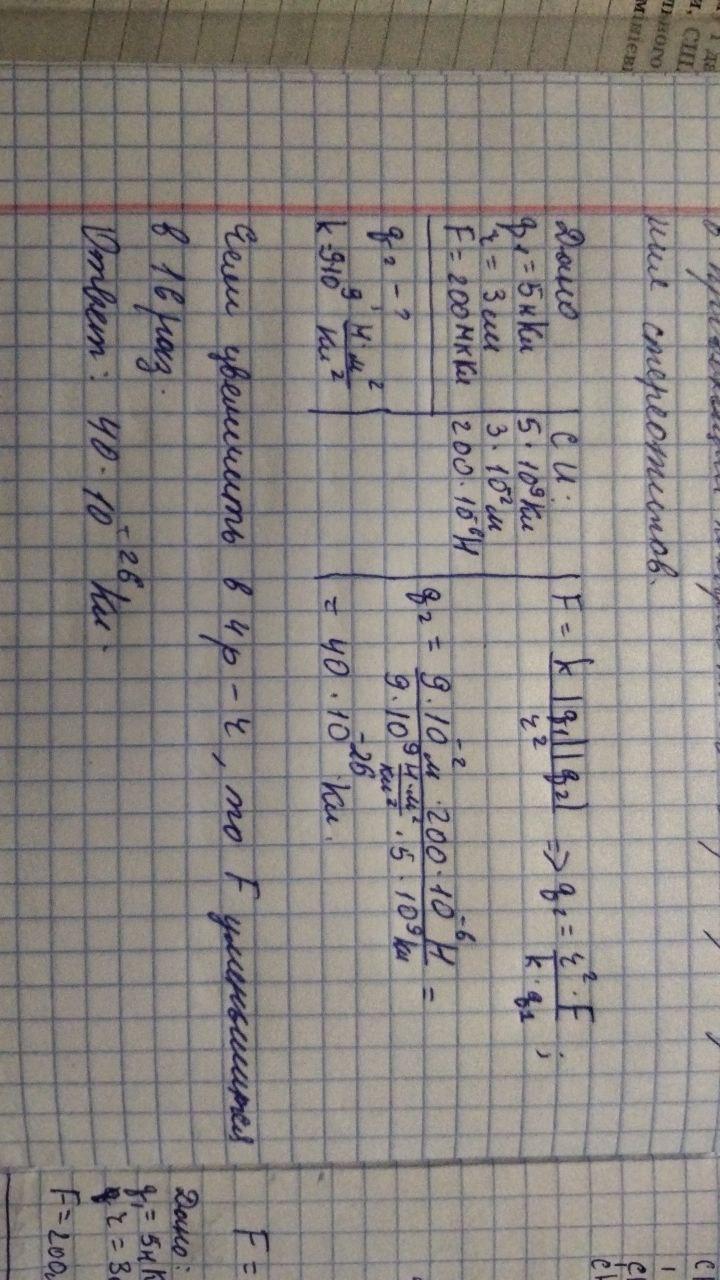 шия стереотипов.
Дано
q₁ = 5 нКл
r = 3 см
F = 200 мкКл
q₂ - ?
k = 9·10⁹ Н·м²/Кл²
СИ:
5·10⁹ Кл
3·10⁻² м
200·10⁻⁶ Н
F = k |q₁||q₂| / r² => q₂ = r²·F / k·q₁ ;
q₂ = 9·10⁻² м · 200·10⁻⁶ Н / 9·10⁹ Н·м²/Кл² · 5·10⁹ Кл =
= 40·10⁻²⁶ Кл.
Если увеличить в 4 р - r, то F уменьшится
в 16 раз.
Ответ: 40·10⁻²⁶ Кл.
F =
Дано:
q₁ = 5 нК
r = 3
F = 200